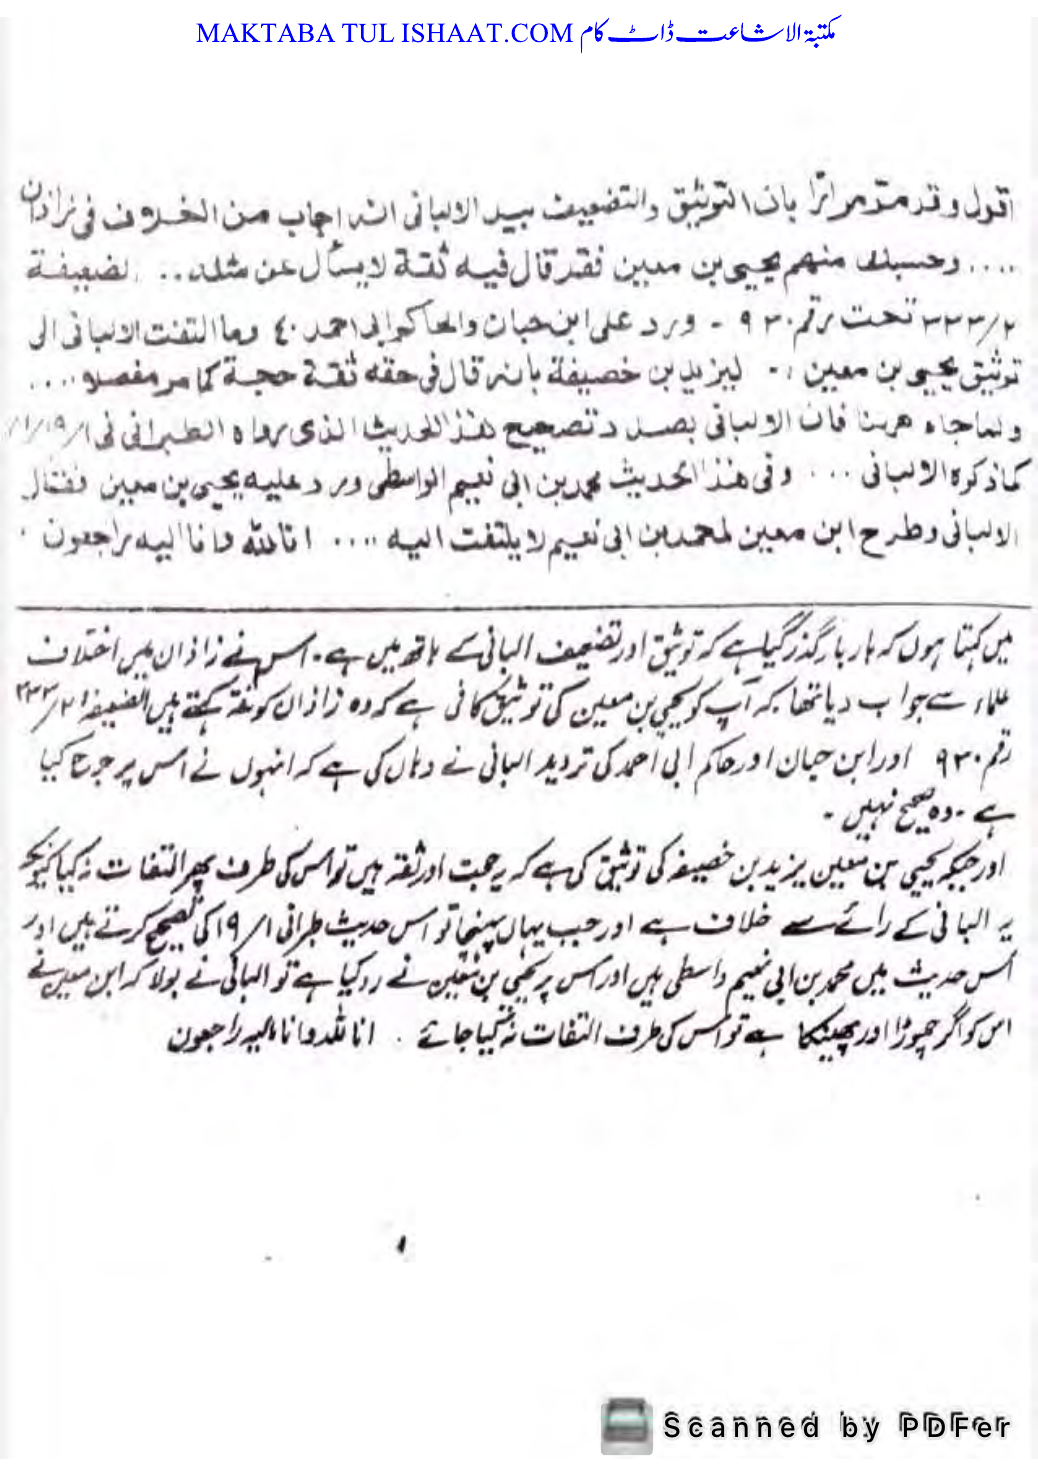 MAKTABA TUL ISHAAT.COM مکتبۃ الاشاعت ڈاٹ کام
اقول وقد مر مرارًا بان التوثیق والتضعیف بید الالبانی انہ اجاب من الخلاف فی زاذان
.... وحسبک منهم یحیی بن معین فقد قال فیہ ثقة لا یسأل عن مثلہ .. لضعیفة
۲/۳۳۳ تحت رقم ۹۳۰ - ورد علی ابن حبان والحاکم ابی احمد ۴۰ وما التفت الالبانی الی
توثیق یحیی بن معین - لیزید بن خصیفة بانہ قال فی حقہ ثقة حجة کما مر مفصلا ....
ولما جاء ههنا فان الالبانی بصدد تصحیح هذا الحدیث الذی رواہ الطبرانی فی
کما ذکرہ الالبانی ... وفی هذا الحدیث محمد بن ابی نعیم الواسطی ورد علیہ یحیی بن معین فقال
الالبانی وطرح ابن معین لمحمد بن ابی نعیم لا یلتفت الیہ .... انا للہ وانا الیہ راجعون .
میں کہتا ہوں کہ بار بار گذر گیا ہے کہ توثیق اور تضعیف البانی کے ہاتھ میں ہے۔ اس نے زاذان میں اختلاف
علماء سے جواب دیا تھا کہ آپ کو یحیی بن معین کی توثیق کافی ہے کہ وہ زاذان کو ثقہ کہتے ہیں الضعیفہ ۲/۳۳۳
رقم ۹۳۰ اور ابن حبان اور حاکم ابی احمد کی تردید البانی نے وہاں کی ہے کہ انہوں نے اس پر جرح کیا
ہے ۔ وہ صحیح نہیں ۔
اور جبکہ یحیی بن معین یزید بن خصیفہ کی توثیق کی ہے کہ یہ حجت اور ثقہ ہیں تو اس کی طرف پھر التفات نہ کیا کیونکہ
یہ البانی کے رائے سے خلاف ہے اور جب یہاں پہنچا تو اس حدیث طبرانی ۱۹/۱ کی تصحیح کرتے ہیں اور
اس حدیث میں محمد بن ابی نعیم واسطی ہیں اور اس پر یحیی بن معین نے رد کیا ہے تو البانی نے بولا کہ ابن معین نے
اس کو اگر چھوڑا اور پھینکا ہے تو اس کی طرف التفات نہ کیا جائے . انا للہ وانا الیہ راجعون
Scanned by PDFer